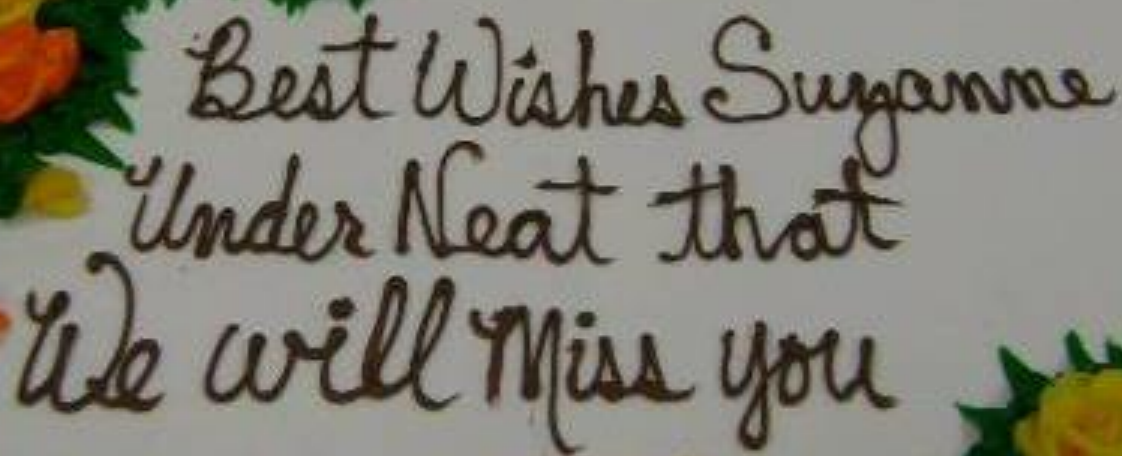 Best Wishes Suzanne
Under Neat that
We will Miss you